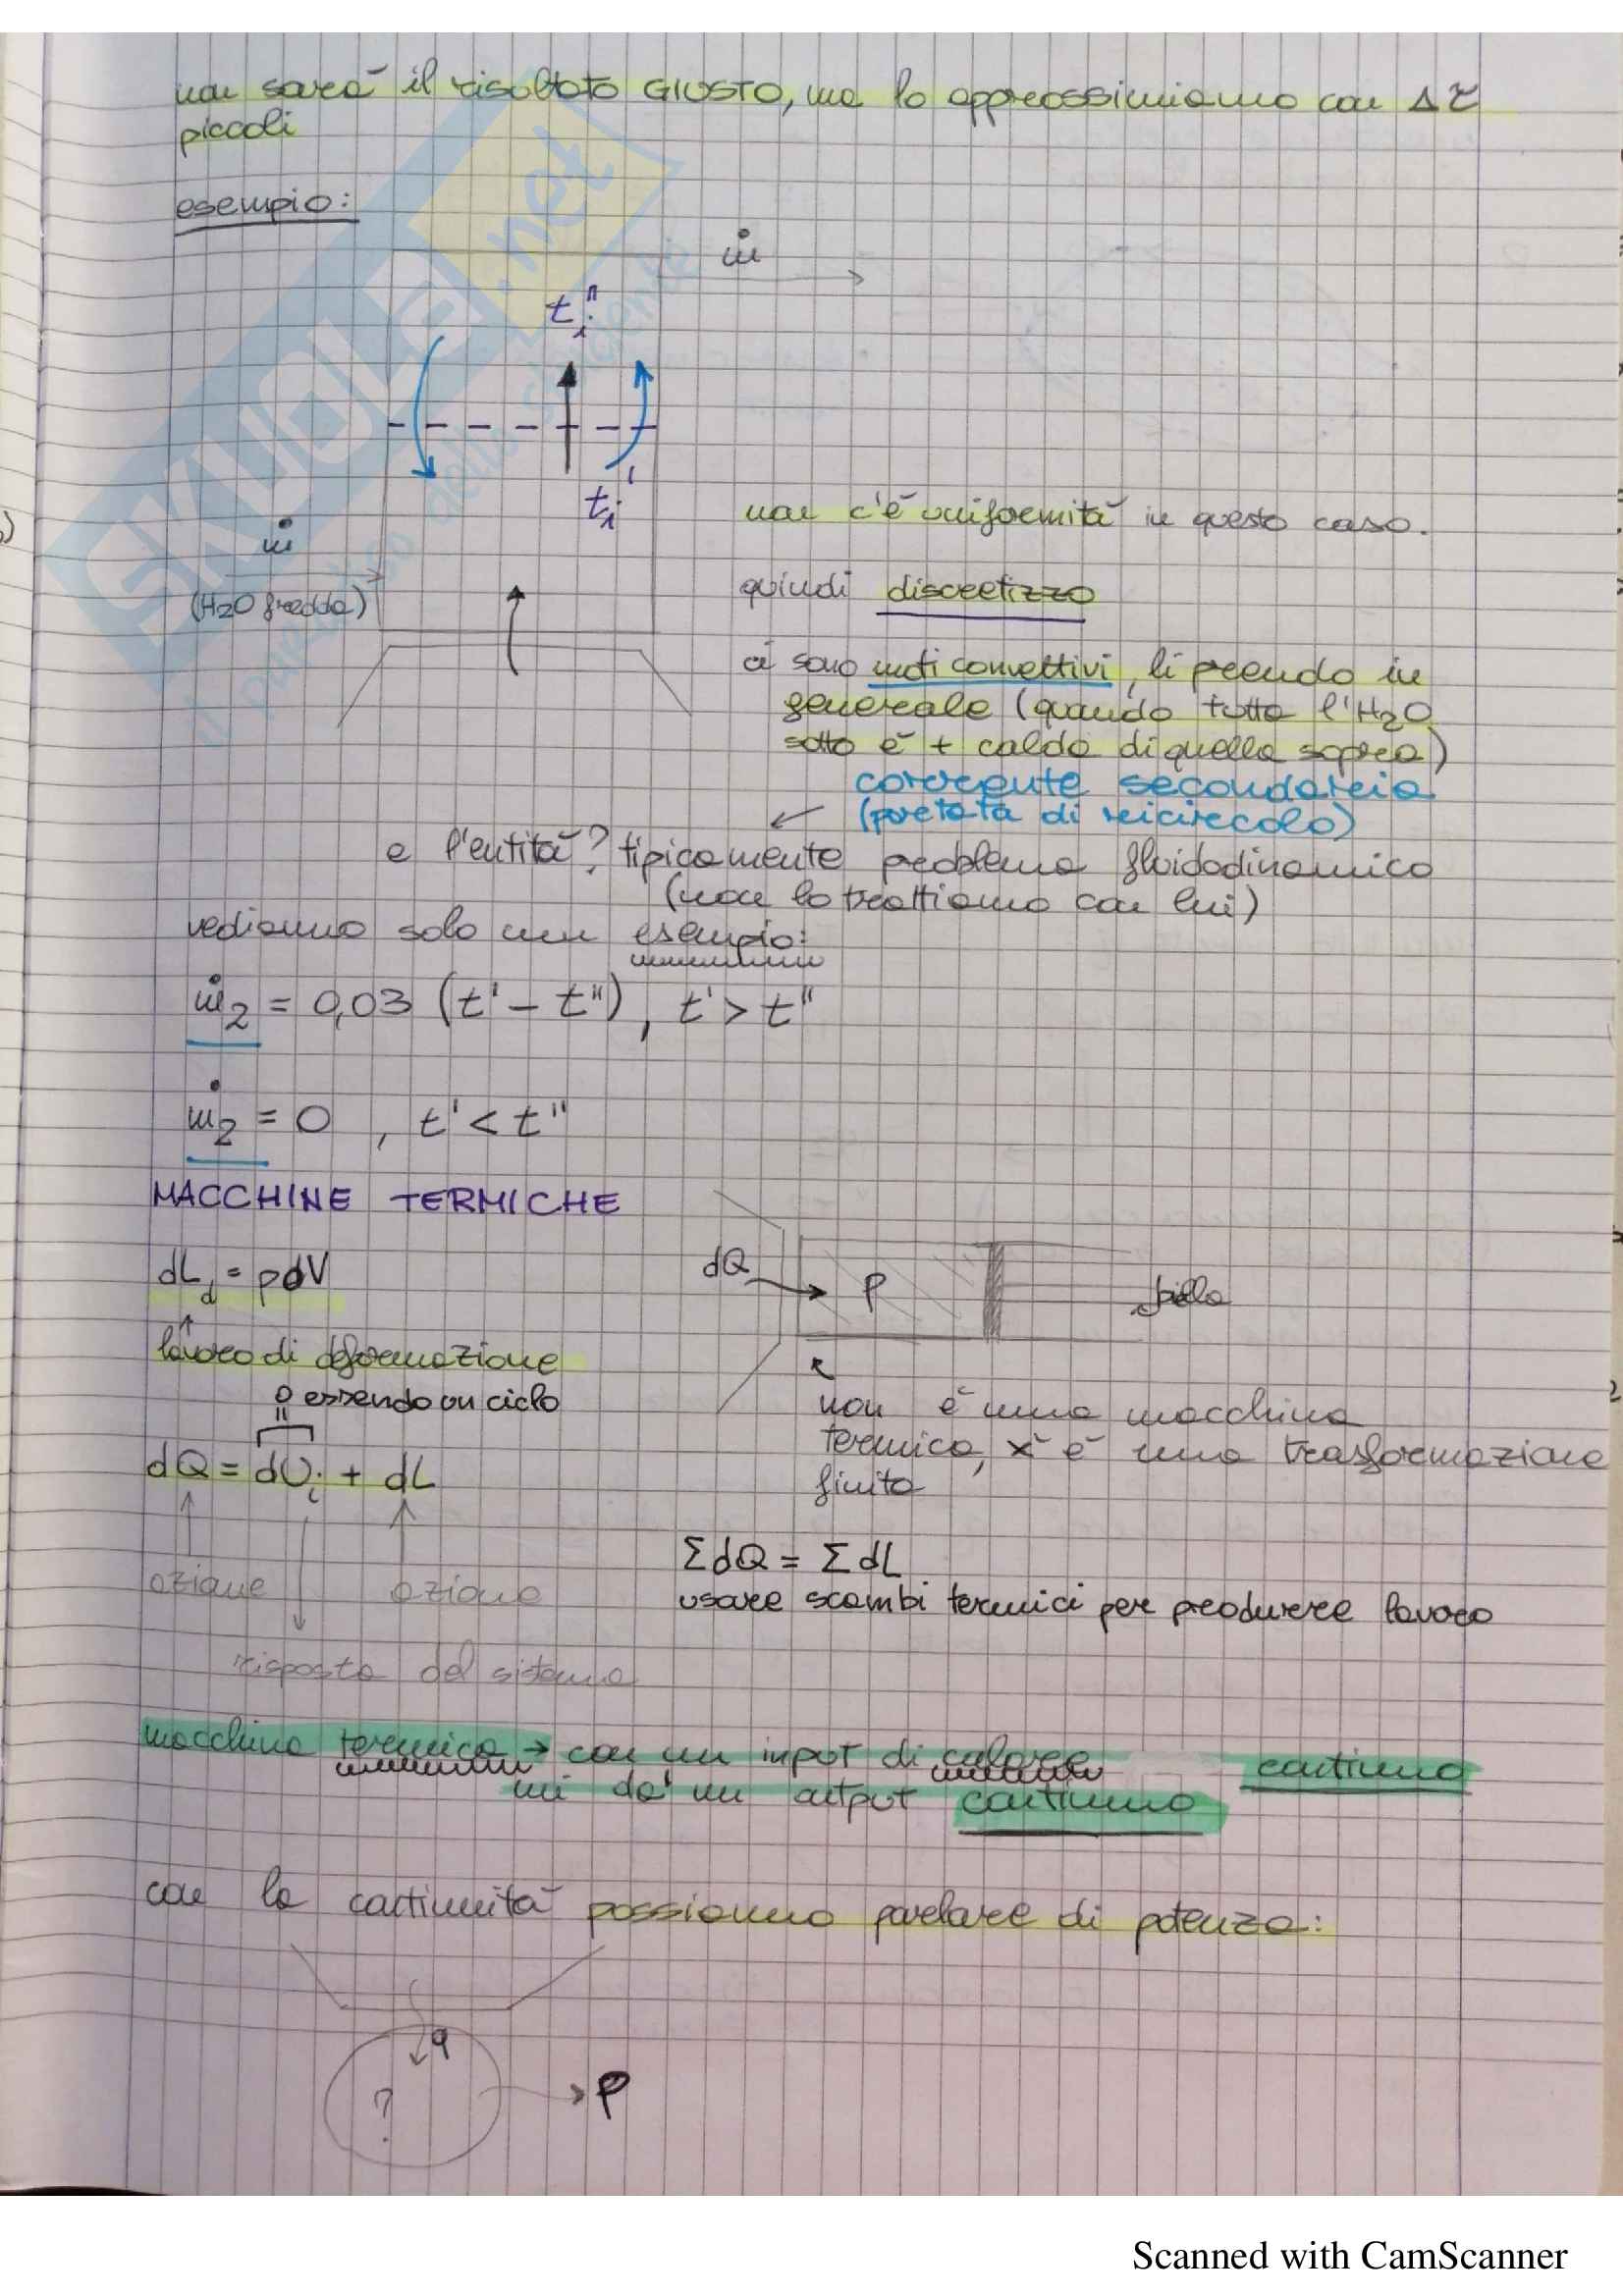 non sarà il risultato GIUSTO, ma lo approssimiamo con Δτ
piccoli
esempio:
ṁ
tᵢ"
tᵢ'
non c'è uniformità in questo caso.
ṁ
(H₂O fredda)
quindi discretizzo
ci sono moti convettivi, li prendo in
generale (quando tutta l'H₂O
sotto è + calda di quella sopra)
corrente secondaria
(portata di ricircolo)
e l'entità? tipicamente problema fluidodinamico
(non lo trattiamo con lui)
vediamo solo un esempio:
ṁ₂ = 0,03 (t' - t"), t' > t"
ṁ₂ = 0, t' < t"
MACCHINE TERMICHE
dL_d = pdV
dQ
P
lavoro di deformazione
0 essendo un ciclo
non è una macchina
termica, x' è una trasformazione
finita
dQ = dUᵢ + dL
ΣdQ = ΣdL
azione
azione
usare scambi termici per produrre lavoro
risposta del sistema
macchina termica → con un input di calore continuo
mi da' un output continuo
con la continuità possiamo parlare di potenza:
q
?
P
SKUOLA.net
Scanned with CamScanner